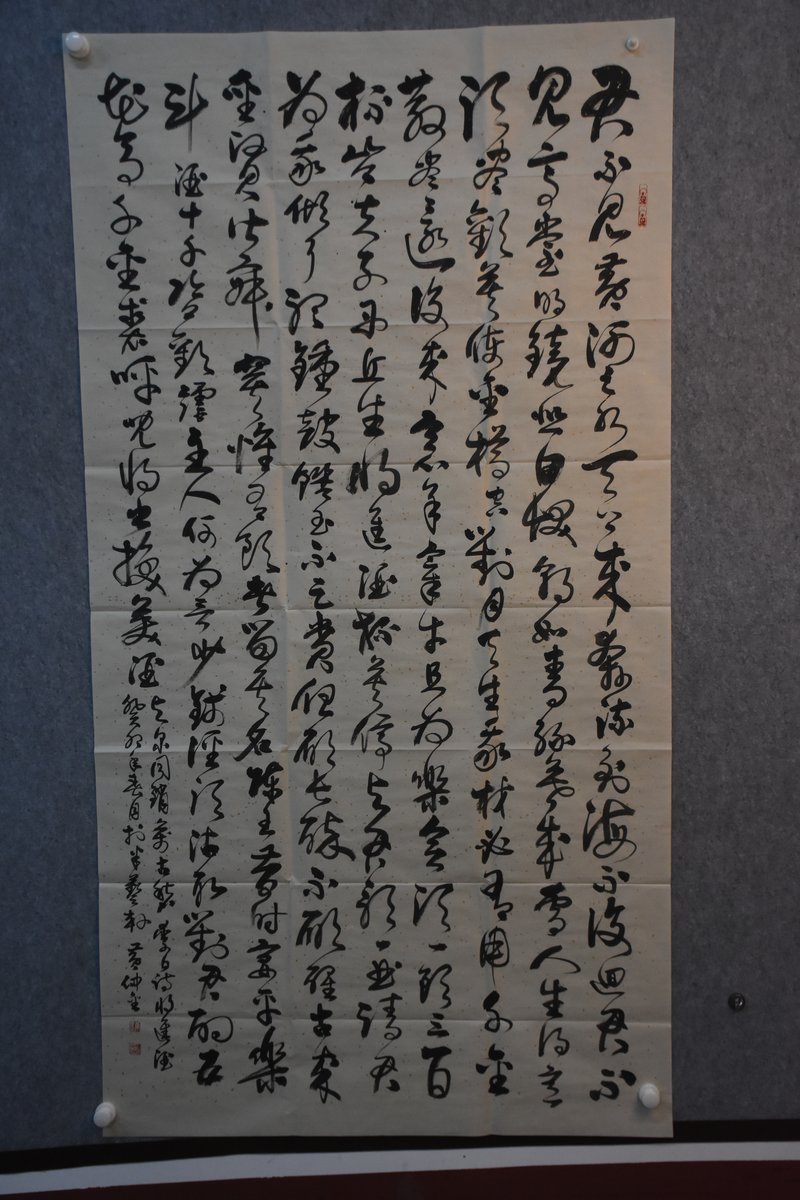 君不見黃河之水天上來奔流到海不復迴君不
見高堂明鏡悲白髮朝如青絲暮成雪人生得意
須盡歡莫使金樽空對月天生我材必有用千金
散盡還復來烹羊宰牛且為樂會須一飲三百
杯岑夫子丹丘生將進酒杯莫停與君歌一曲請君
為我傾耳聽鐘鼓饌玉不足貴但願長醉不願醒古來
聖賢皆寂寞惟有飲者留其名陳王昔時宴平樂
斗酒十千恣歡謔主人何為言少錢徑須沽取對君酌五
花馬千金裘呼兒將出換美酒
與爾同銷萬古愁李白詩將進酒
癸卯年春月於半藝軒黃仲金